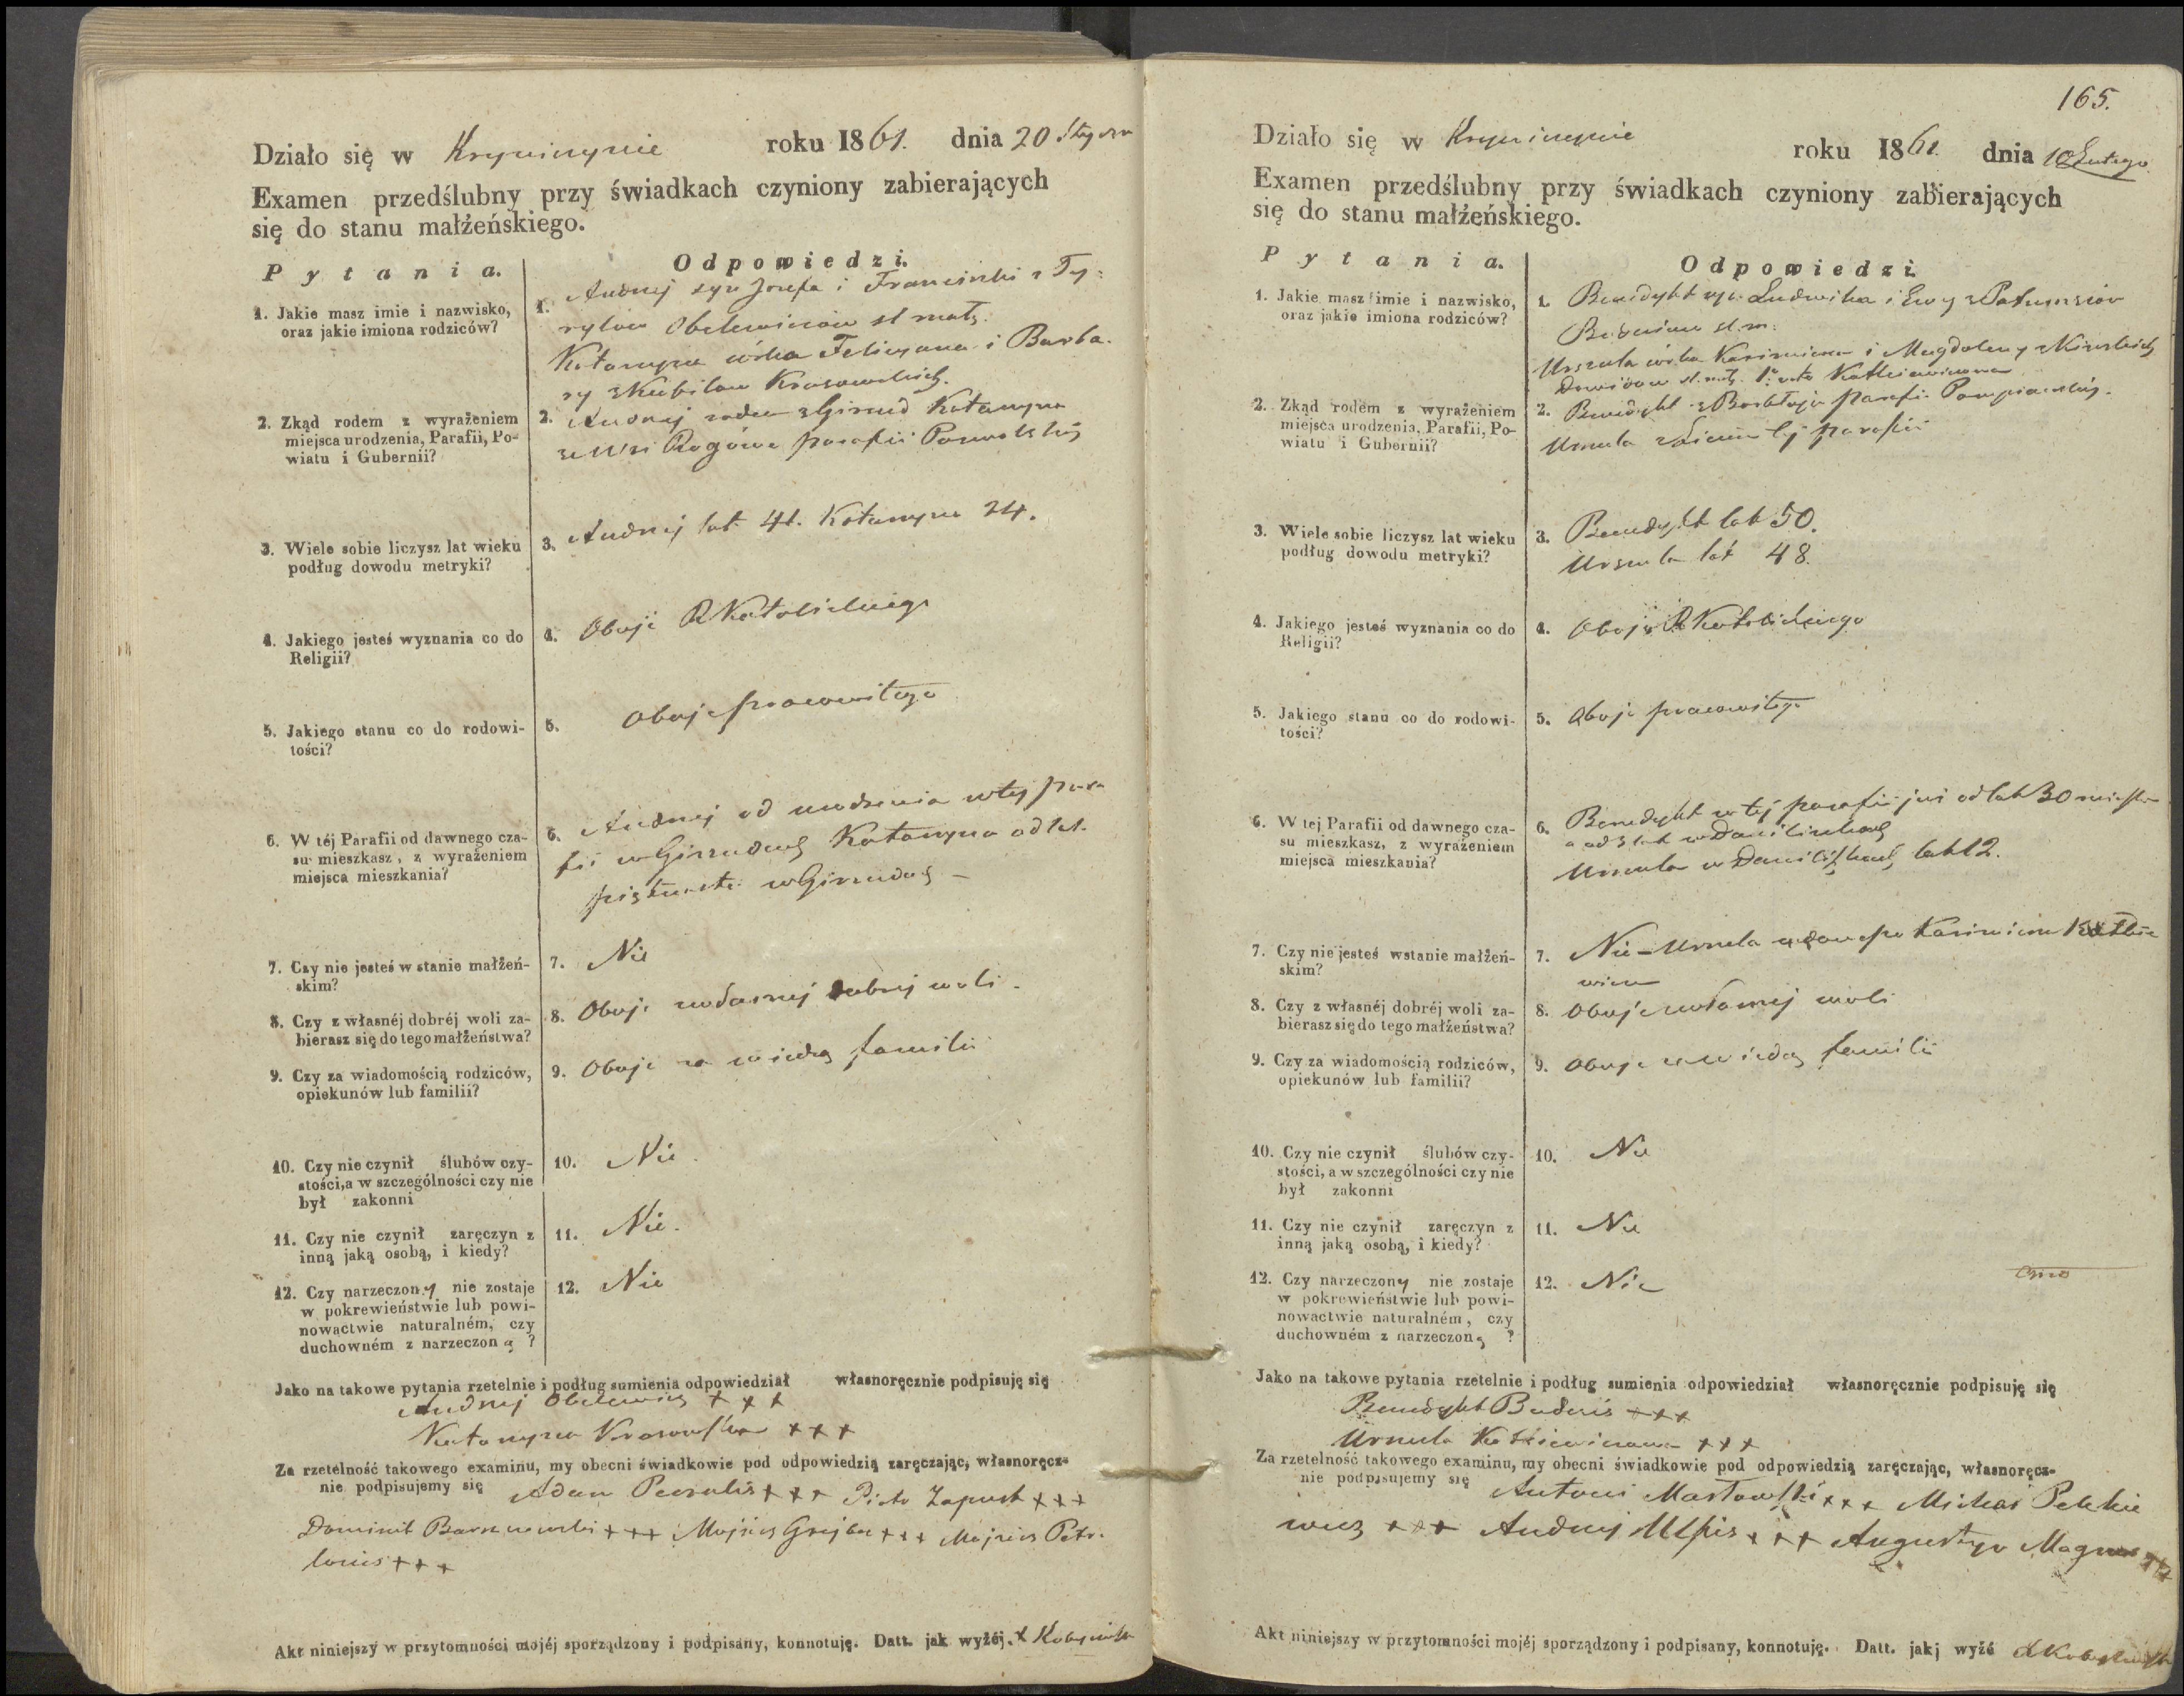 Działo się w Krynicynie roku 1861. dnia 20 Stycznia
Examen przedślubny przy świadkach czyniony zabierających
się do stanu małżeńskiego.
Pytania.
Odpowiedzi.
1. Jakie masz imie i nazwisko,
oraz jakie imiona rodziców?
1. Andrzej syn Jozefa i Franciszki z Ty-
rylów Obelewiczów sl. małż.
Katarzyna córka Felicyana i Barba-
ry z Kubilow Krasowskich.
2. Zkąd rodem z wyrażeniem
miejsca urodzenia, Parafii, Po-
wiatu i Gubernii?
2. Andrzej rodem z Katarzyna
ze Wsi Rogówa parafii
3. Wiele sobie liczysz lat wieku
podług dowodu metryki?
3. Andrzej lat 41. Katarzyna 24.
4. Jakiego jesteś wyznania co do
Religii?
4. Oboje R Katolickiego
5. Jakiego stanu co do rodowi-
tości?
5. Oboje pracowitego
6. W téj Parafii od dawnego cza-
su mieszkasz, z wyrażeniem
miejsca mieszkania?
6. Andrzej od urodzenia w tej para
fii w Katarzyna od lat
piętnastu w
7. Czy nie jesteś w stanie małżeń-
skim?
7. Nie
8. Czy z własnéj dobréj woli za-
bierasz się do tego małżeństwa?
8. Oboje z własnej dobrej woli.
9. Czy za wiadomością rodziców,
opiekunów lub familii?
9. Oboje za wiedzą familii
10. Czy nie czynił ślubów czy-
stości, a w szczególności czy nie
był zakonni
10. Nie.
11. Czy nie czynił zaręczyn z
inną jaką osobą, i kiedy?
11. Nie.
12. Czy narzeczony nie zostaje
w pokrewieństwie lub powi-
nowactwie naturalném, czy
duchowném z narzeczoną ?
12. Nie
Jako na takowe pytania rzetelnie i podług sumienia odpowiedział własnoręcznie podpisuję się
Andrzej Obelewicz + + +
Katarzyna Krasowska + + +
Za rzetelność takowego examinu, my obecni świadkowie pod odpowiedzią zaręczając, własnoręcz-
nie podpisujemy się Adam + + + Piotr Zapust + + +
Dominik + + + + + + Petro-
+ + +
Akt niniejszy w przytomności mojéj sporządzony i podpisany, konnotuję. Datt. jak wyżéj.
165.
Działo się w Krynicynie roku 1861. dnia 10 Lutego
Examen przedślubny przy świadkach czyniony zabierających
się do stanu małżeńskiego.
Pytania.
Odpowiedzi.
1. Jakie masz imie i nazwisko,
oraz jakie imiona rodziców?
1. Benedykt syn Ludwika i Ewy z
sl. m.
Urszula córka Kazimierza i Magdaleny z
sl. małż. 1° voto
2. Zkąd rodem z wyrażeniem
miejsca urodzenia, Parafii, Po-
wiatu i Gubernii?
2. Benedykt z parafii
Urszula z tej parafii
3. Wiele sobie liczysz lat wieku
podług dowodu metryki?
3. Benedykt lat 50.
Urszula lat 48.
4. Jakiego jesteś wyznania co do
Religii?
4. Oboje R Katolickiego
5. Jakiego stanu co do rodowi-
tości?
5. Oboje pracowitego
6. W tej Parafii od dawnego cza-
su mieszkasz, z wyrażeniem
miejsca mieszkania?
6. Benedykt w tej parafii już od lat 30
a od 3 lat w
Urszula w lat 12.
7. Czy nie jesteś wstanie małżeń-
skim?
7. Nie – Urszula wdowa po Kazimierzu
8. Czy z własnéj dobréj woli za-
bierasz się do tego małżeństwa?
8. Oboje z własnej woli
9. Czy za wiadomością rodziców,
opiekunów lub familii?
9. Oboje za wiedzą familii
10. Czy nie czynił ślubów czy-
stości, a w szczególności czy nie
był zakonni
10. Nie
11. Czy nie czynił zaręczyn z
inną jaką osobą, i kiedy?
11. Nie
12. Czy narzeczony nie zostaje
w pokrewieństwie lub powi-
nowactwie naturalném, czy
duchowném z narzeczoną ?
12. Nie
Jako na takowe pytania rzetelnie i podług sumienia odpowiedział własnoręcznie podpisuję się
Benedykt + + +
Urszula + + +
Za rzetelność takowego examinu, my obecni świadkowie pod odpowiedzią zaręczając, własnoręcz-
nie podpisujemy się Antoni Masłowski + + + Michał Petkie
wicz + + + Andrzej + + + Augustyn
Akt niniejszy w przytomności mojéj sporządzony i podpisany, konnotuję. Datt. jakj wyżé